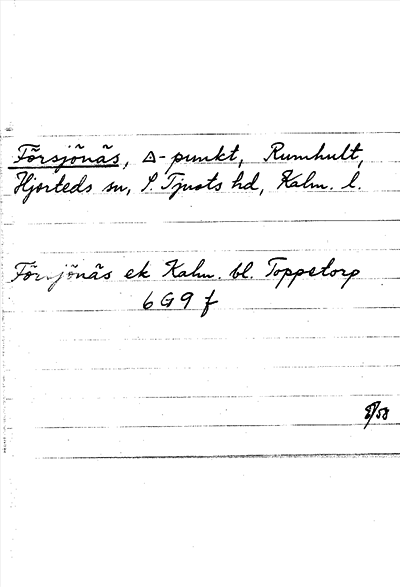 Försjönäs, △-punkt, Rumhult,
Hjorteds sn, S. Tjusts hd, Kalm. l.
Försjönäs ek Kalm. bl. Toppetorp
6G9f